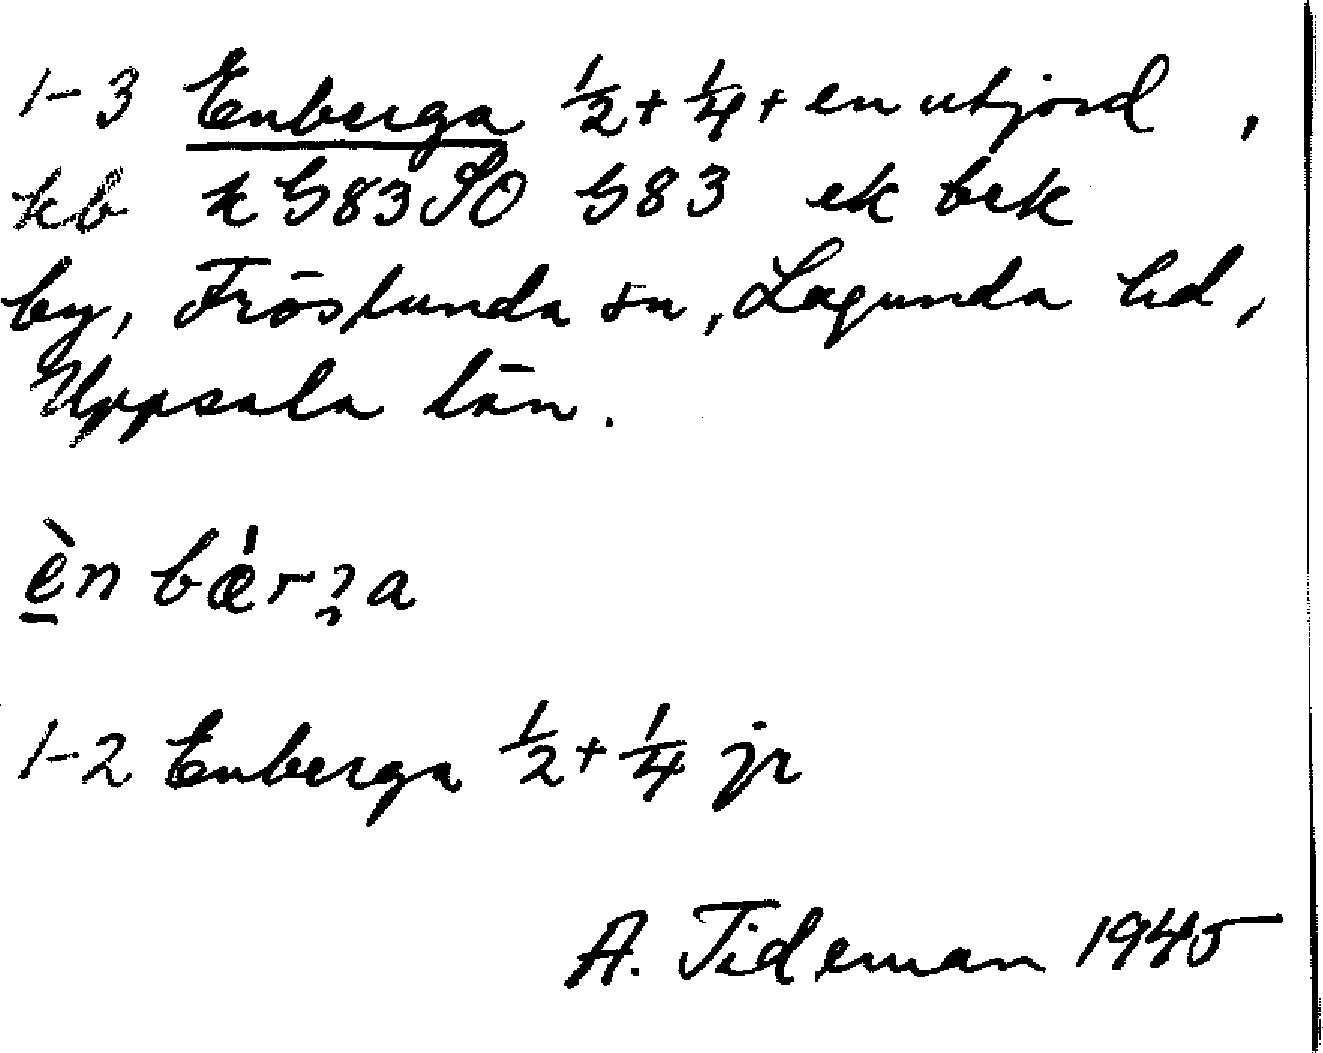 1-3 Enberga ½ + ¼ + en utjord,
kb k G83SO G83 ek bek
by, Fröslunda sn, Lagunda hd,
Uppsala län.
èn bǽr
1-2 Enberga ½ + ¼ jr
A. Tideman 1945